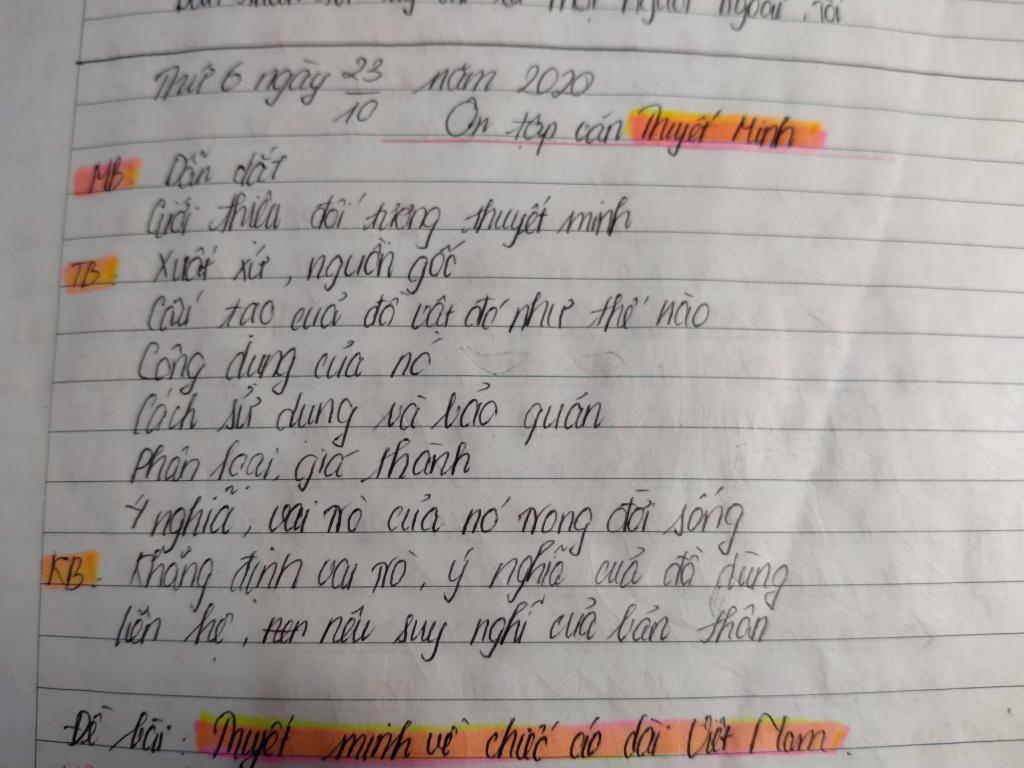 Thứ 6 ngày 23/10 năm 2020
Ôn tập căn Thuyết Minh
MB: Dẫn dắt
Giới thiệu đối tượng thuyết minh
TB: Xuất xứ, nguồn gốc
Cấu tạo của đồ vật đó như thế nào
Công dụng của nó
Cách sử dụng và bảo quản
Phân loại, giá thành
Ý nghĩa, vai trò của nó trong đời sống
KB: Khẳng định vai trò, ý nghĩa của đồ dùng
liên hệ, nêu suy nghĩ của bản thân
Đề bài: Thuyết minh về chiếc áo dài Việt Nam.